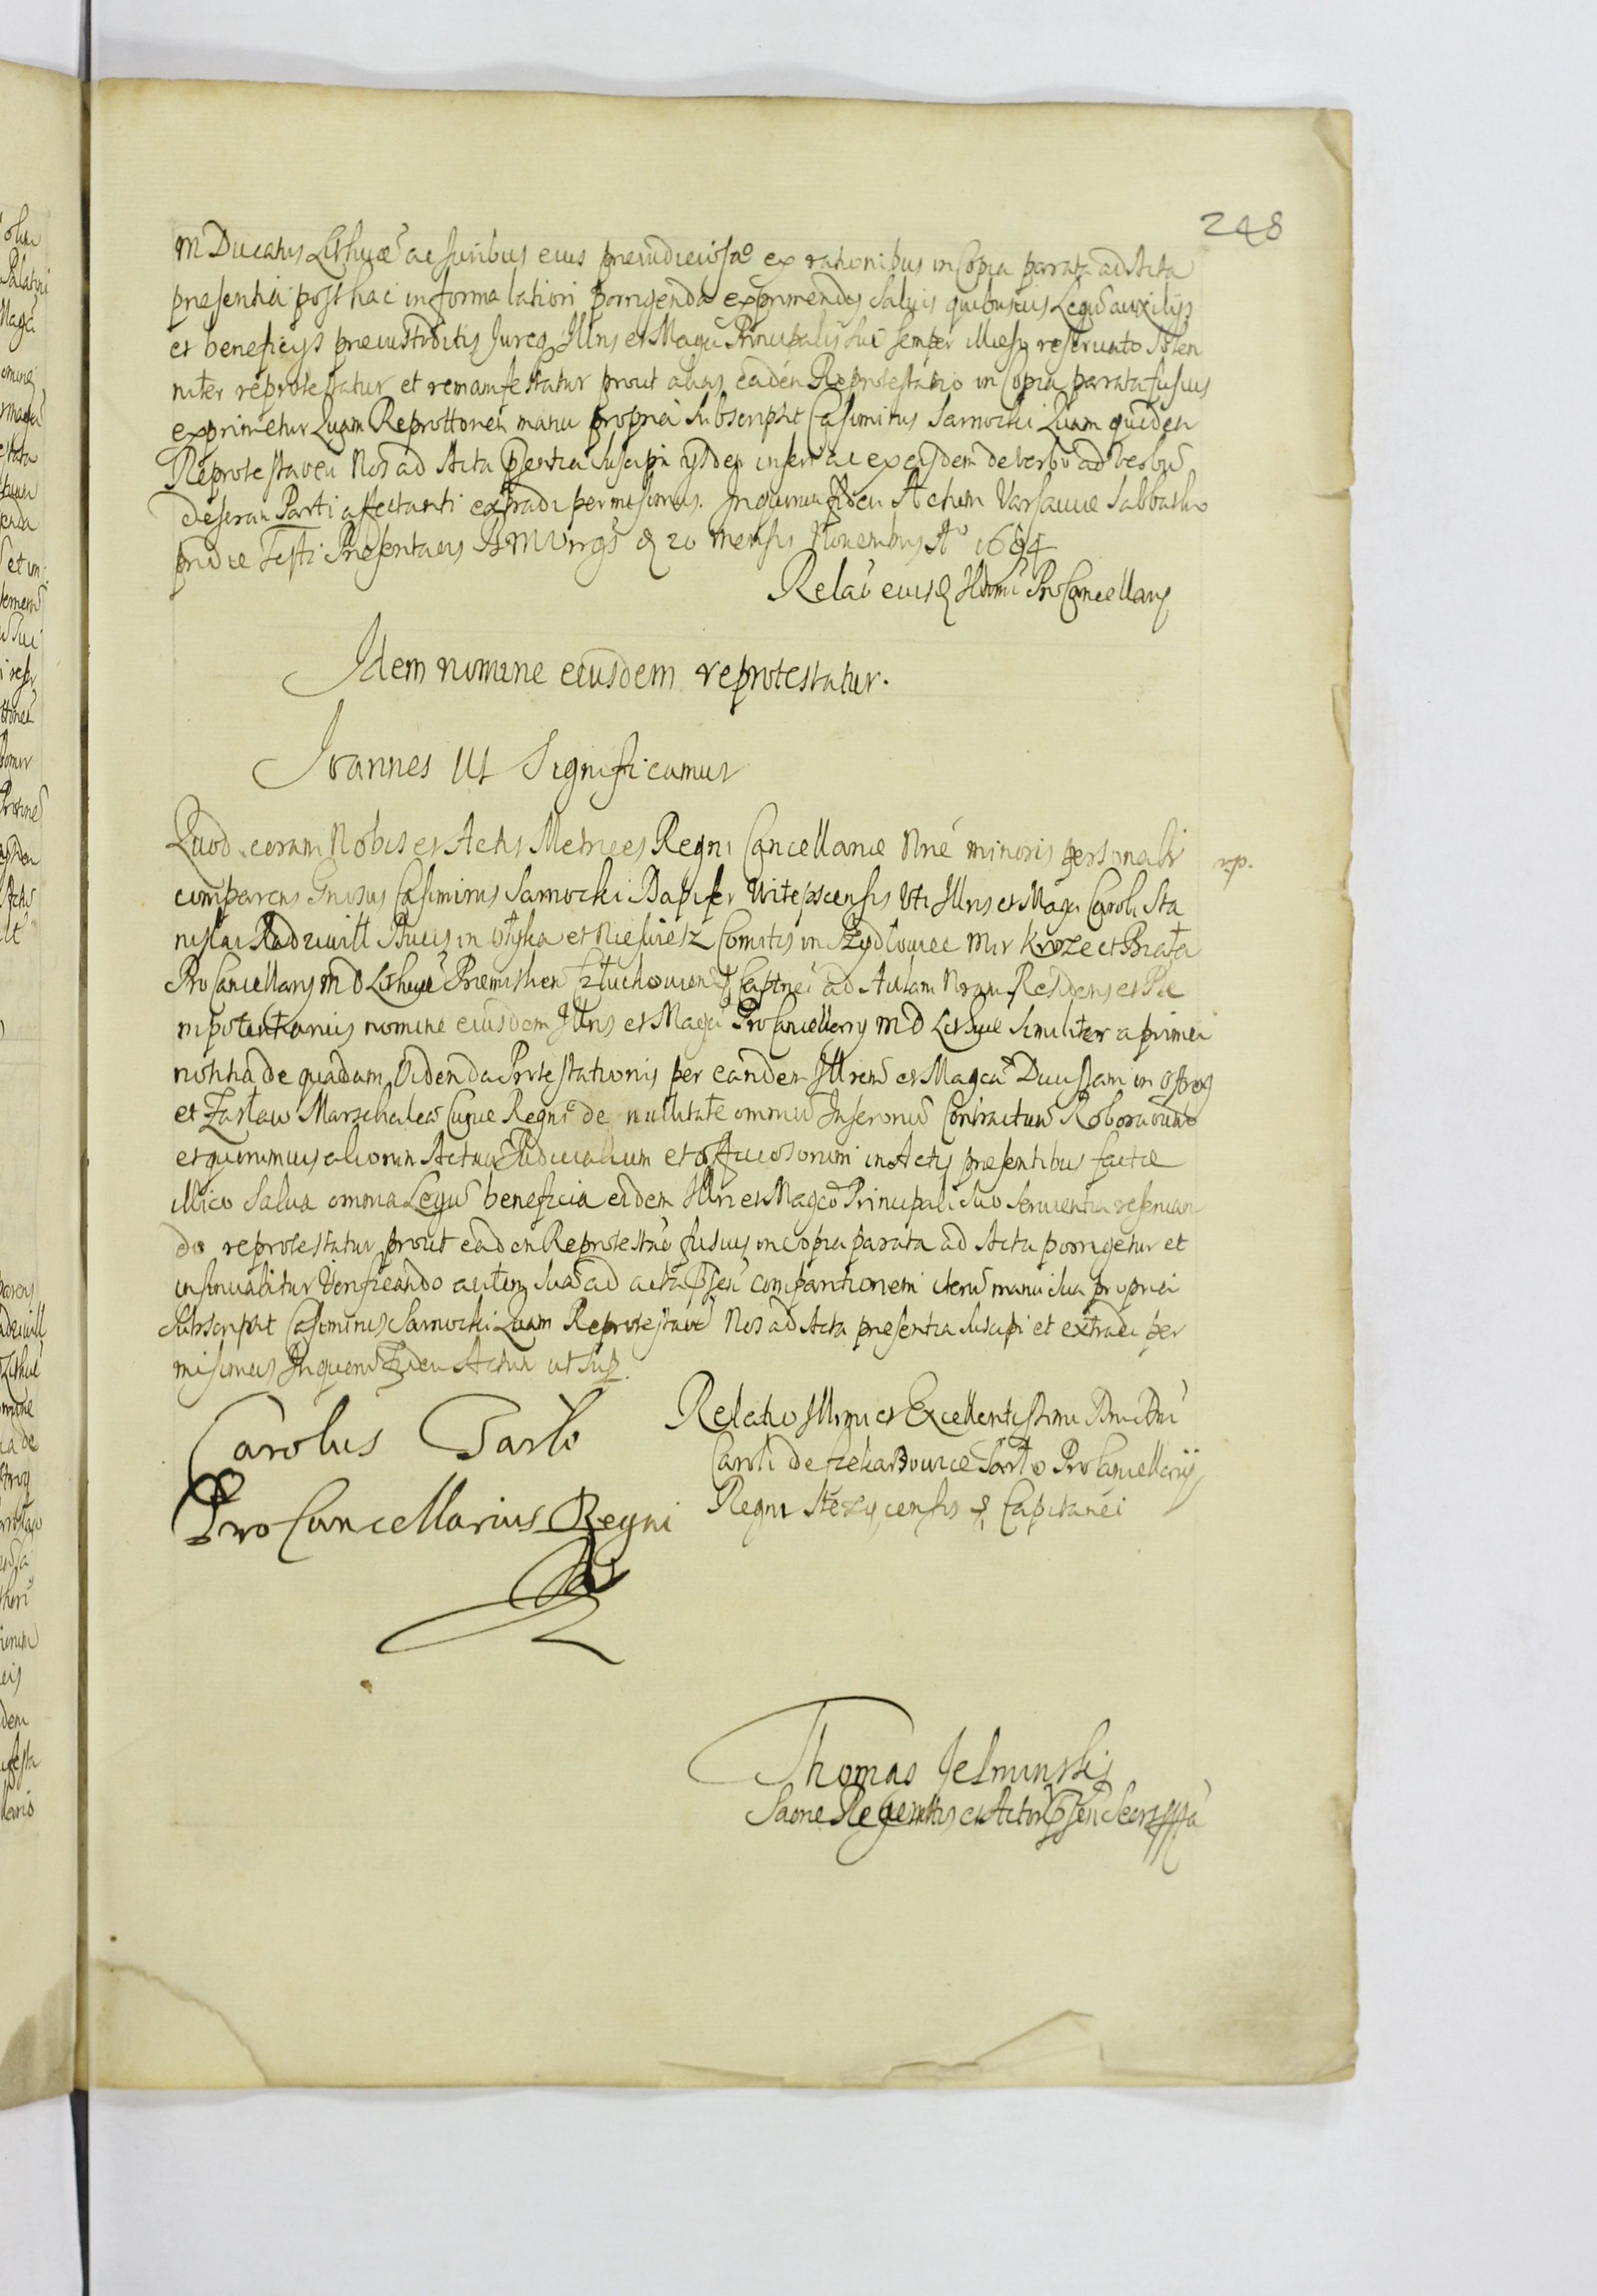 248
M Ducatus Lithuae ac Juribus eius preiudiciosae ex rationibus in Copia parata ad Acta
presentia post hac in forma latiori porrigenda exprimendis Salvis quibusvis Legu auxilijs
et beneficijs precustoditis Jureq Illris et Magci Principalis sui semper illaeso reservato Solen
niter reprotestatur et remanifestatur prout alias eadem Reprotestatio in Copia parata fusius
exprimetur Quam Reprottonem manu propria Subscripsit Casimirus Sarnocki Quam quidem
Reprotestaoem Nos ad Acta psentia Suscipi ijsdem inseri ac ex eisdem de verbo ad verbu
desuam Parti affectanti extradi permisimus. In quorum fidem Actum Varsaviae Sabbatho
pridie Festi Presentaois B M Virgs d 20 mensis Novembris Ao 1694
Relao eiusd Illomi Pro Cancellary
Idem nomine eiusdem reprotestatur.
Joannes III Significamus
Quod coram Nobis et Actis Metrices Regni Cancellariae Nrae minoris personalr rp.
comparens Gnosus Casimirus Sarnocki Dapifer Vitepscensis Uti Illris et Magci Caroli Sta
nislai Radziwiłł Ducis in Ołyka et Nieswiesz Comitis in Szydłowiec Mir Kroze et Biała
Pro Cancellary M D Lithuae Premislien Człuchovien & Captnei ad Aulam Nram Residens et Ple
nipotentiarius nomine eiusdem Illris et Magci Pro Cancellary M D Lithuae Similiter a prima
notitia de quadam Videnda Protestationis per eandem Illrem et Magcam Ducissam in Ostrog
et Zasław Marschalca Curiae Regni de nullitate omniu Inscronu Contractuu Roboraonu
et quorumvis aliorum Actuu Judicialium et officiosorum in Actis presentibus factae
illico Salva omnia Legu beneficia eidem Illri et Magco Principali suo Servientia reservan
do reprotestatur prout eadem Reprotestao fusius in Copia parata ad Acta porrigetur et
insinuabitur Verificando autem Sua ad acta psen comparitionem iteru manu sua propria
Subscripsit Casimirus Sarnocki Quam Reprotestaoe Nos ad Acta presentia Suscipi et extradi per
misimus In quoru fidem Actum ut Sup.
Carolus Tarło
Pro Cancellarius Regni
Relatio Illrmi et Excellentissimi Dni Dni
Caroli de Czekarzowice Tarło Pro Cancellarij
Regni Stezycensis & Capitanei
Thomas Jelminski
Sacrae Regentis et Actor psen Secr